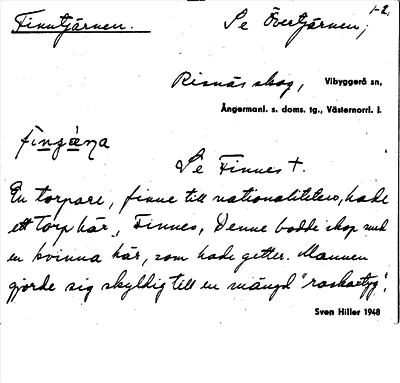 Finntjärnen. Se Övertjärnen, 1-2,
Risnäs skog, Vibyggerå sn,
Ångermanl. s. doms. tg., Västernorrl. l.
Se Finnes +.
En torpare, finne till nationaliteten, hade
ett torp här, Finnes, Denne bodde ihop med
en kvinna här, som hade getter. Mannen
gjorde sig skyldig till en mängd "rackartyg".
Sven Hiller 1948